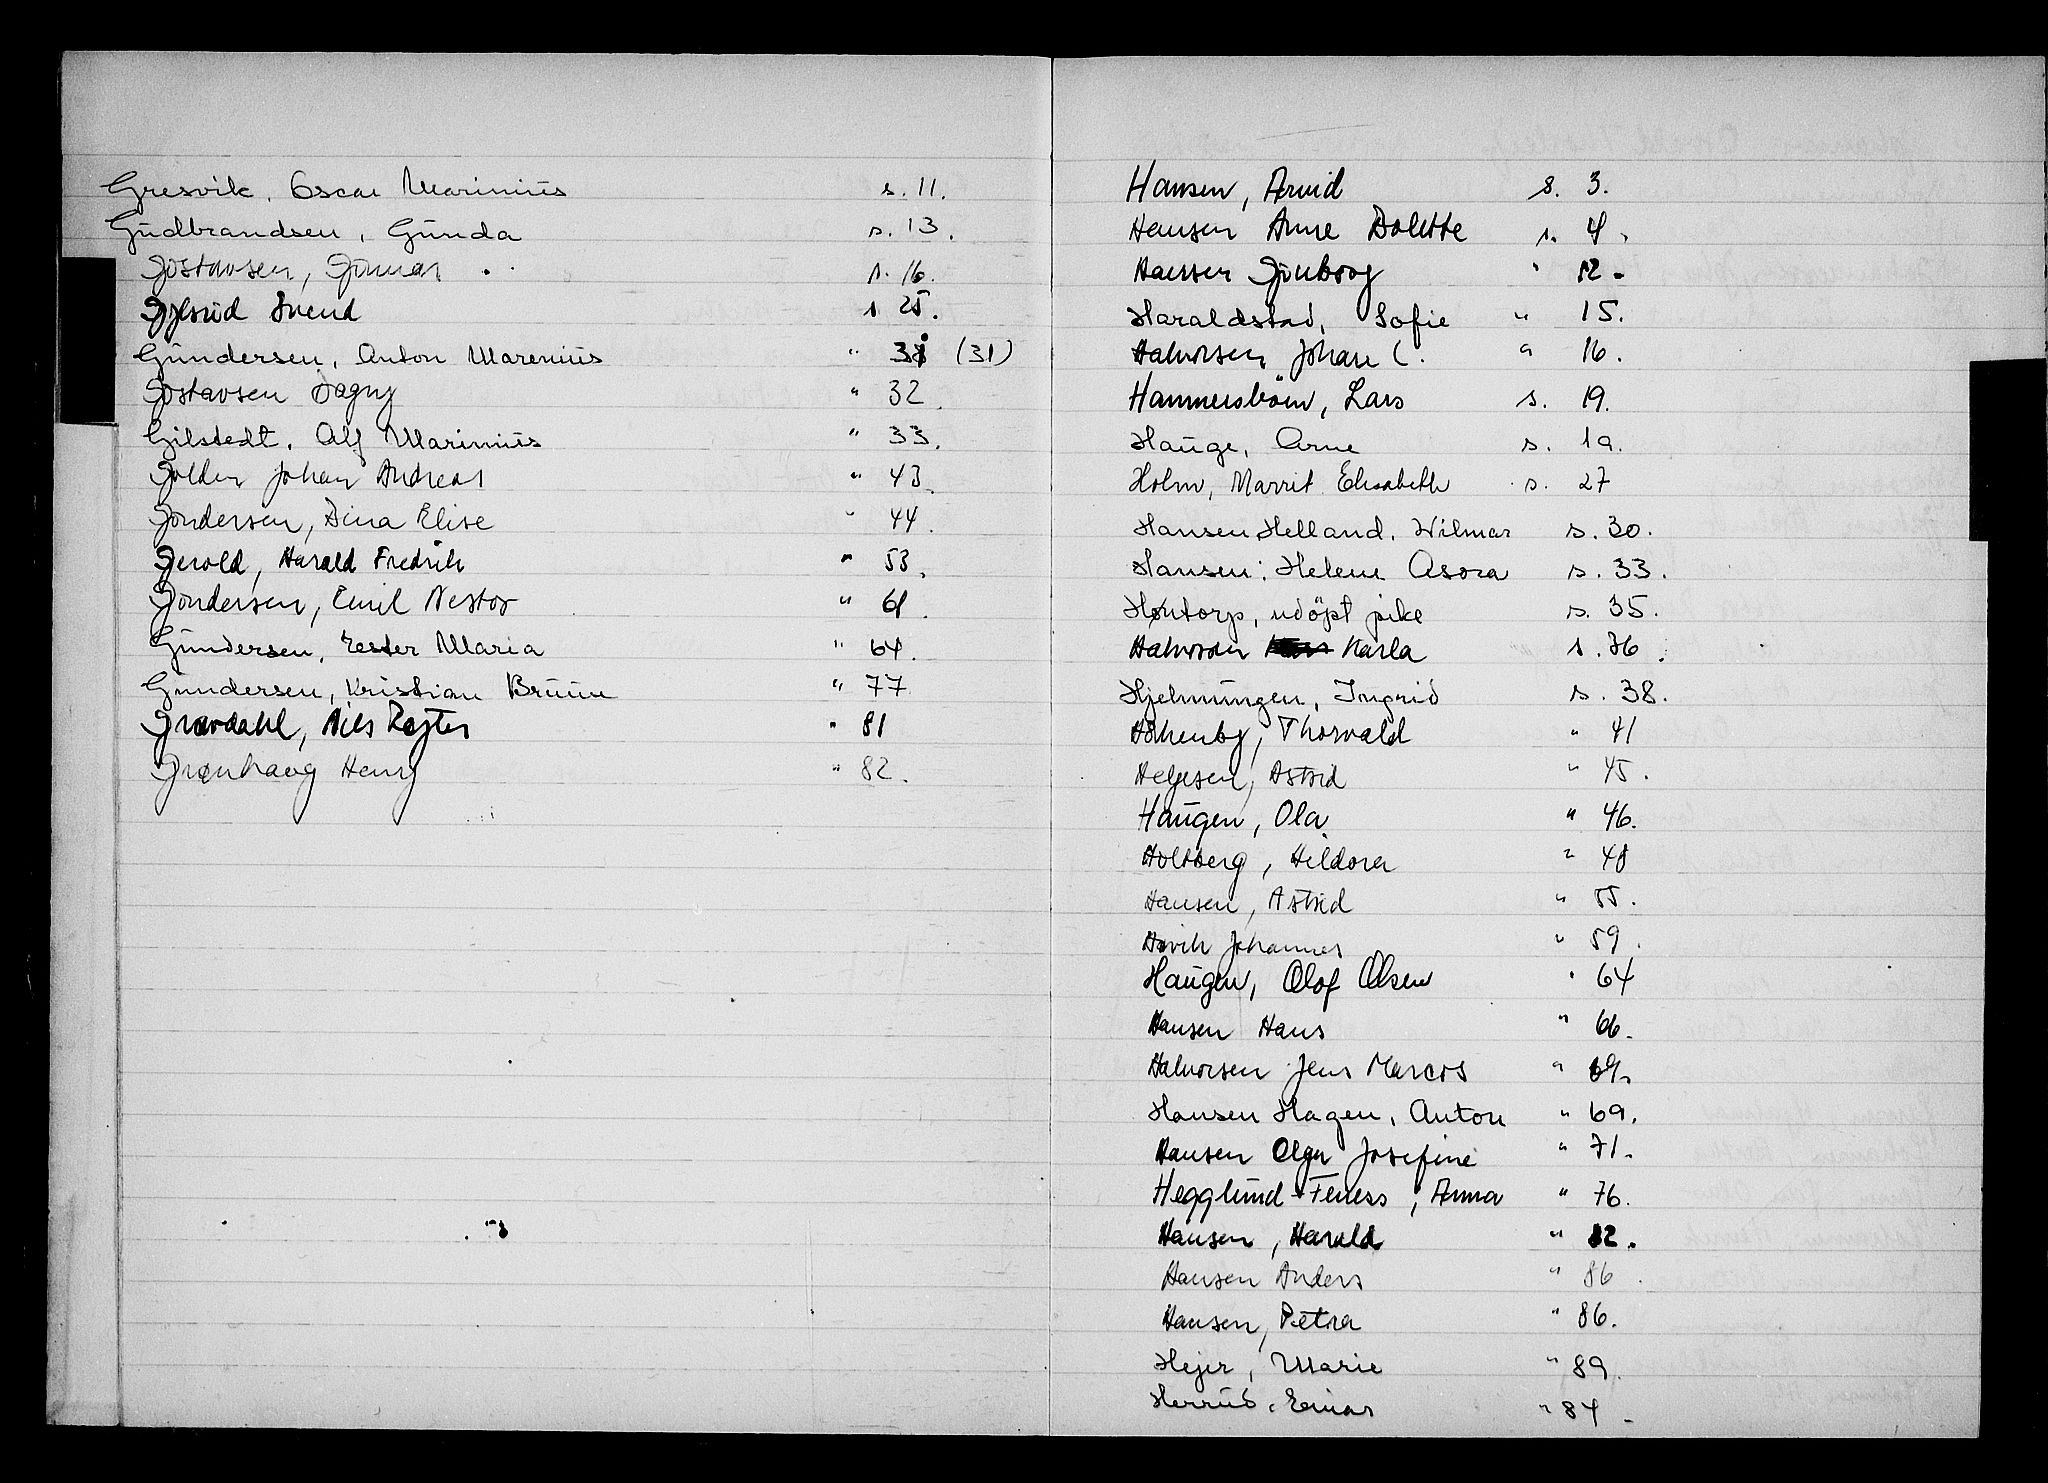 Gresvik, Oscar Marinius s. 11.
Gudbrandsen, Gunda s. 13.
Gostavsen, Gunnar s. 16.
Gjelsrud Svend s 25.
Gundersen, Anton Marenius " 31 (31)
Gostavsen Dagny " 32.
Gilstedt, Alf Marinius " 33.
Golden Johan Andreas " 43.
Gondersen, Dina Elise " 44.
Gerold, Harald Fredrik " 53.
Gondersen, Emil Nestor " 61.
Gundersen, Ester Maria " 64.
Gundersen, Kristian Bruun " 77
Grøndahl, Nils " 81
Grønhaog Henry " 82.
Hansen, Arvid s. 3.
Hansen Anne Bolette s. 4.
Hansen Gunborg " 12.
Haraldstad, Sofie " 15.
Halvorsen, Johan C. " 16.
Hammersbøen, Lars s. 19.
Hauge, Arne s. 19.
Holm, Marrit Elisabeth s. 27
Hansen Helland, Wilmar s. 30.
Hansen: Helene Asora s. 33.
Høntorp, udöpt pike s. 35.
Halvorsen Karla s. 36.
Hjelmungen, Ingrid s. 38.
Thorvald " 41
Helgesen, Astrid " 45.
Haugen, Ola " 46.
Holtberg, Hildora " 48
Hansen, Astrid " 55.
Høvik Johannes " 59.
Haugen, Olof Olsen " 64
Hansen Hans " 66.
Halvorsen Jens Marcos " 69.
Hansen Hagen, Anton " 69.
Hansen Olga Josefine " 71.
Hegglund-Feness, Anna " 76.
Hansen, Harald " 82.
Hansen Anders " 86.
Hansen, Petra " 86.
Hejer, Marie " 89.
Herrud, Einar " 84.